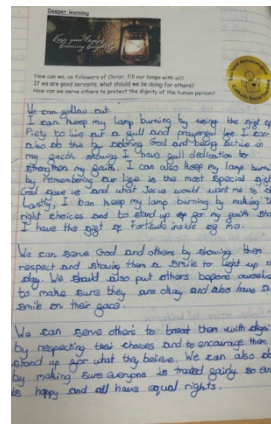 Deeper learning
Keep your lamps
burning bright
How can we, as followers of Christ, fill our lamps with oil?
If we are good servants, what should we be doing for others?
How can we serve others to protect the dignity of the human person?
We can
I can keep my lamp burning by using the gift of
Piety to live out a full and prayerful life. I can
also do this by adoring God and being active in
my faith, showing I have full dedication to
strengthen my faith. I can also keep my lamp burni
by remembering our life is the most special gift
God gave us and what Jesus would want me to
Lastly, I can keep my lamp burning by making t
right choices and to stand up for my faith
I have the gift of Fortitude inside of me.
We can serve God and others by showing them
respect and showing them a smile to light up
day. We should also put others before ourselve
to make sure they are okay and also have a
smile on their face.
We can serve others to treat them with dign
by respecting their choices and to encourage them
stand up for what they believe. We can also d
by making sure everyone is treated fairly so
is happy and all have equal rights.